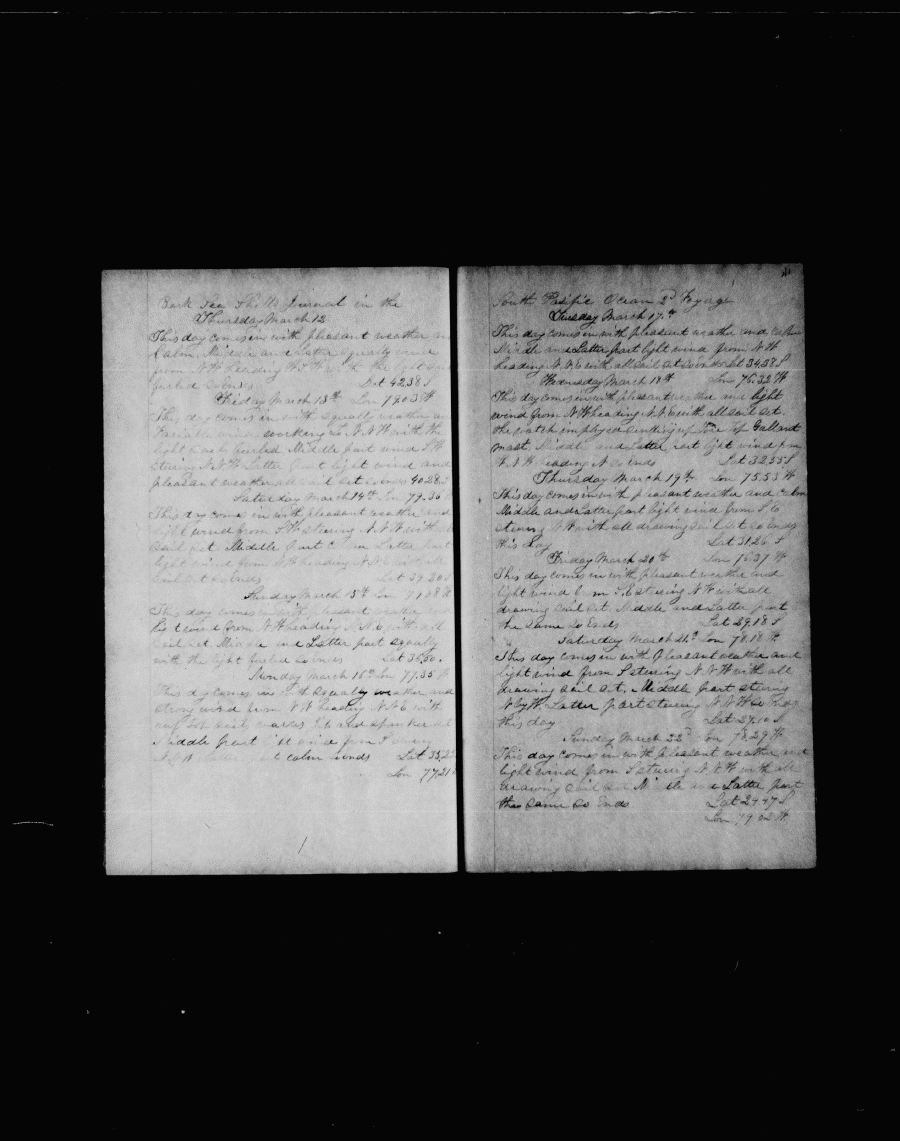 Bark Sea Journal in the
Thursday March 12
This day comes in with pleasant weather an
Calm, Middle and Latter squally wind
from N.W heading with the light
furled So ends Lat 42.38 S
Friday March 13th Lon 79.03 W
This day comes in with squally weather an
Variable winds working to N.N.W with the
light sails furled Middle part wind S.W
stering N.N.W Latter part light wind and
pleasant weather all sail set so ends 40.28 S
Saturday March 14th Lon 79.36 W
This day comes in with pleasant weather and
light wind from S.W stering N.N.W with all
Sail set Middle Part Calm Latter part
light wind from N.W heading N.N.E with all
Sail set So Ends Lat 39.20 S
Sunday March 15th Lon
This day comes in with pleasant weather and
light wind from N.W heading N.N.E with all
Sail set, Middle and Latter part squally
with the light furled So ends Lat 36.50
Monday March 16th Lon 77.35 W
This day comes in with Squally weather and
strong wind from N.W heading N.N.E with
sail and spanker set
Middle part light wind from S stering
calm so ends Lat 35.2
Lon 77.21
South Pasific Ocean 2d Voyage
Tuesday March 17.th
This day comes in with pleasant weather and calm
Middle and Latter part light wind from N.W
heading N.N.E with all Sail set So ends Lat 34.38 S
Wednesday March 18th Lon 76.32 W
This day comes in with pleasant weather and light
wind from N.W heading N.N.E with all sail set.
the watch imployed sending up fore Top Gallant
mast, Middle and Latter part light wind from
W.N.W heading N So ends Lat 32.55 S
Thursday March 19th Lon 75.53 W
This day comes in with pleasant weather and calm
Middle and Latter part light wind from S.E
stering N.W with all drawing Sail set so ends
this Day Lat 31.26 S
Friday March 20th Lon 76.37 W
This day comes in with pleasant weather and
light wind from S.E stering N.W with all
drawing Sail set, Middle and Latter part
the same So Ends Lat 29.18 S
Saturday March 21st Lon 78.18 W
This day comes in with Pleasant weather and
light wind from S stering N.N.W with all
drawing Sail set, Middle part stering
N By W. Latter part stering N.N.W So Ends
this day Lat 27.10 S
Sunday March 22d Lon 78.29 W
This day comes in with Pleasant weather and
light wind from S stering N.N.W with all
drawing Sail set Middle and Latter part
the same So Ends Lat 24.47 S
Lon 79.02 W